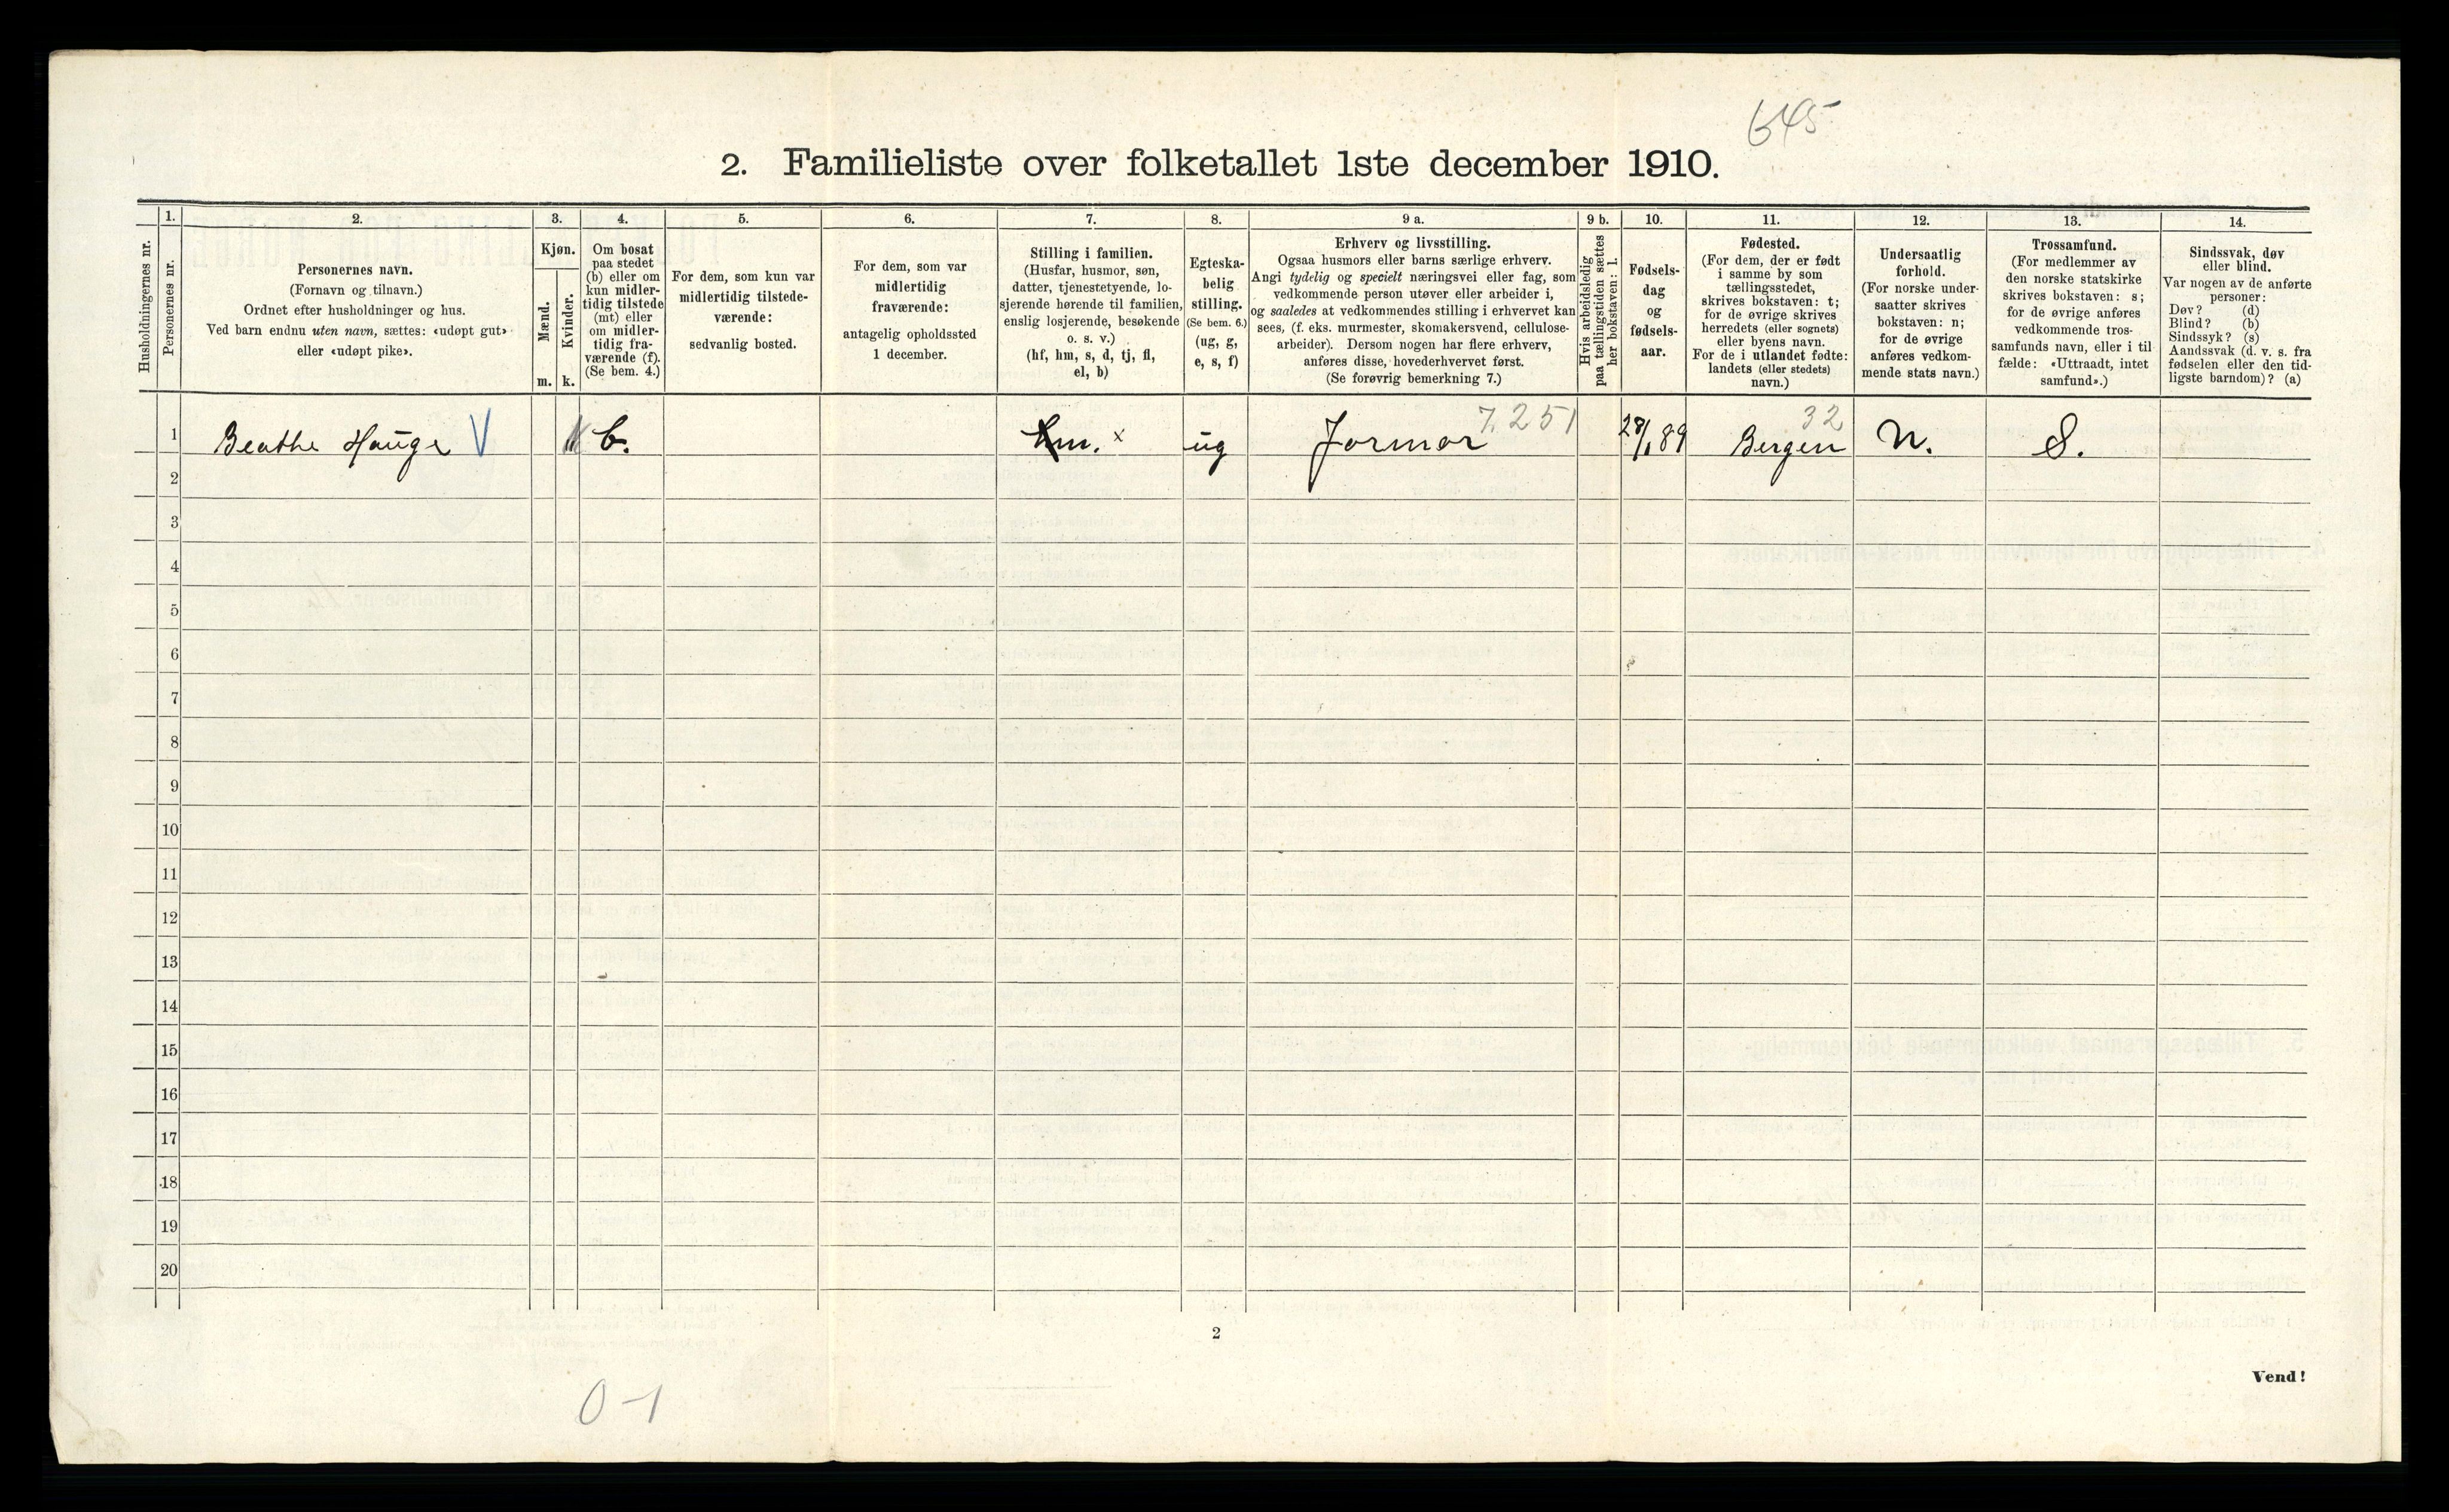 645
2. Familieliste over folketallet 1ste december 1910.
Husholdningernes nr.
1.
Personernes nr.
2.
Personernes navn.
(Fornavn og tilnavn.)
Ordnet efter husholdninger og hus.
Ved barn endnu uten navn, sættes: «udøpt gut»
eller «udøpt pike».
3.
Kjøn.
Mænd.
Kvinder.
m. k.
4.
Om bosat
paa stedet
(b) eller om
kun midler-
tidig tilstede
(mt) eller
om midler-
tidig fra-
værende (f).
(Se bem. 4.)
5.
For dem, som kun var
midlertidig tilstede-
værende:
sedvanlig bosted.
6.
For dem, som var
midlertidig
fraværende:
antagelig opholdssted
1 december.
7.
Stilling i familien.
(Husfar, husmor, søn,
datter, tjenestetyende, lo-
sjerende hørende til familien,
enslig losjerende, besøkende
o. s. v.)
(hf, hm, s, d, tj, fl,
el, b)
8.
Egteska-
belig
stilling.
(Se bem. 6.)
(ug, g,
e, s, f)
9 a.
Erhverv og livsstilling.
Ogsaa husmors eller barns særlige erhverv.
Angi tydelig og specielt næringsvei eller fag, som
vedkommende person utøver eller arbeider i,
og saaledes at vedkommendes stilling i erhvervet kan
sees, (f. eks. murmester, skomakersvend, cellulose-
arbeider). Dersom nogen har flere erhverv,
anføres disse, hovederhvervet først.
(Se forøvrig bemerkning 7.)
9 b.
Hvis arbeidsledig
paa tællingstiden sættes
her bokstaven: l.
10.
Fødsels-
dag
og
fødsels-
aar.
11.
Fødested.
(For dem, der er født
i samme by som
tællingsstedet,
skrives bokstaven: t;
for de øvrige skrives
herredets (eller sognets)
eller byens navn.
For de i utlandet fødte:
landets (eller stedets)
navn.)
12.
Undersaatlig
forhold.
(For norske under-
saatter skrives
bokstaven: n;
for de øvrige
anføres vedkom-
mende stats navn.)
13.
Trossamfund.
(For medlemmer av
den norske statskirke
skrives bokstaven: s;
for de øvrige anføres
vedkommende tros-
samfunds navn, eller i til-
fælde: «Uttraadt, intet
samfund».)
14.
Sindssvak, døv
eller blind.
Var nogen av de anførte
personer:
Døv? (d)
Blind? (b)
Sindssyk? (s)
Aandssvak (d. v. s. fra
fødselen eller den tid-
ligste barndom)? (a)
7.251 32
1 Beathe Hauge V b. hm. x ug Jormor 28/1 89 Bergen N. S.
2
3
4
5
6
7
8
9
10
11
12
13
14
15
16
17
18
19
20
2
Vend!
0-1